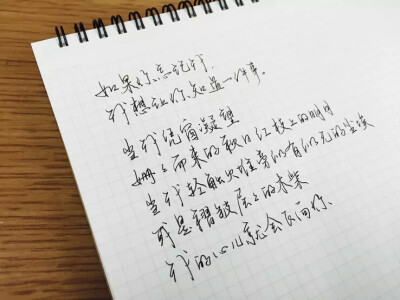 如果你忘记我,
我想让你知道一件事。
当我凭窗凝望
姗姗而来的秋日红枝上的明月
当我轻触火堆旁似有似无的尘埃
或是褶皱层层的木柴
我的心儿就会飞向你.